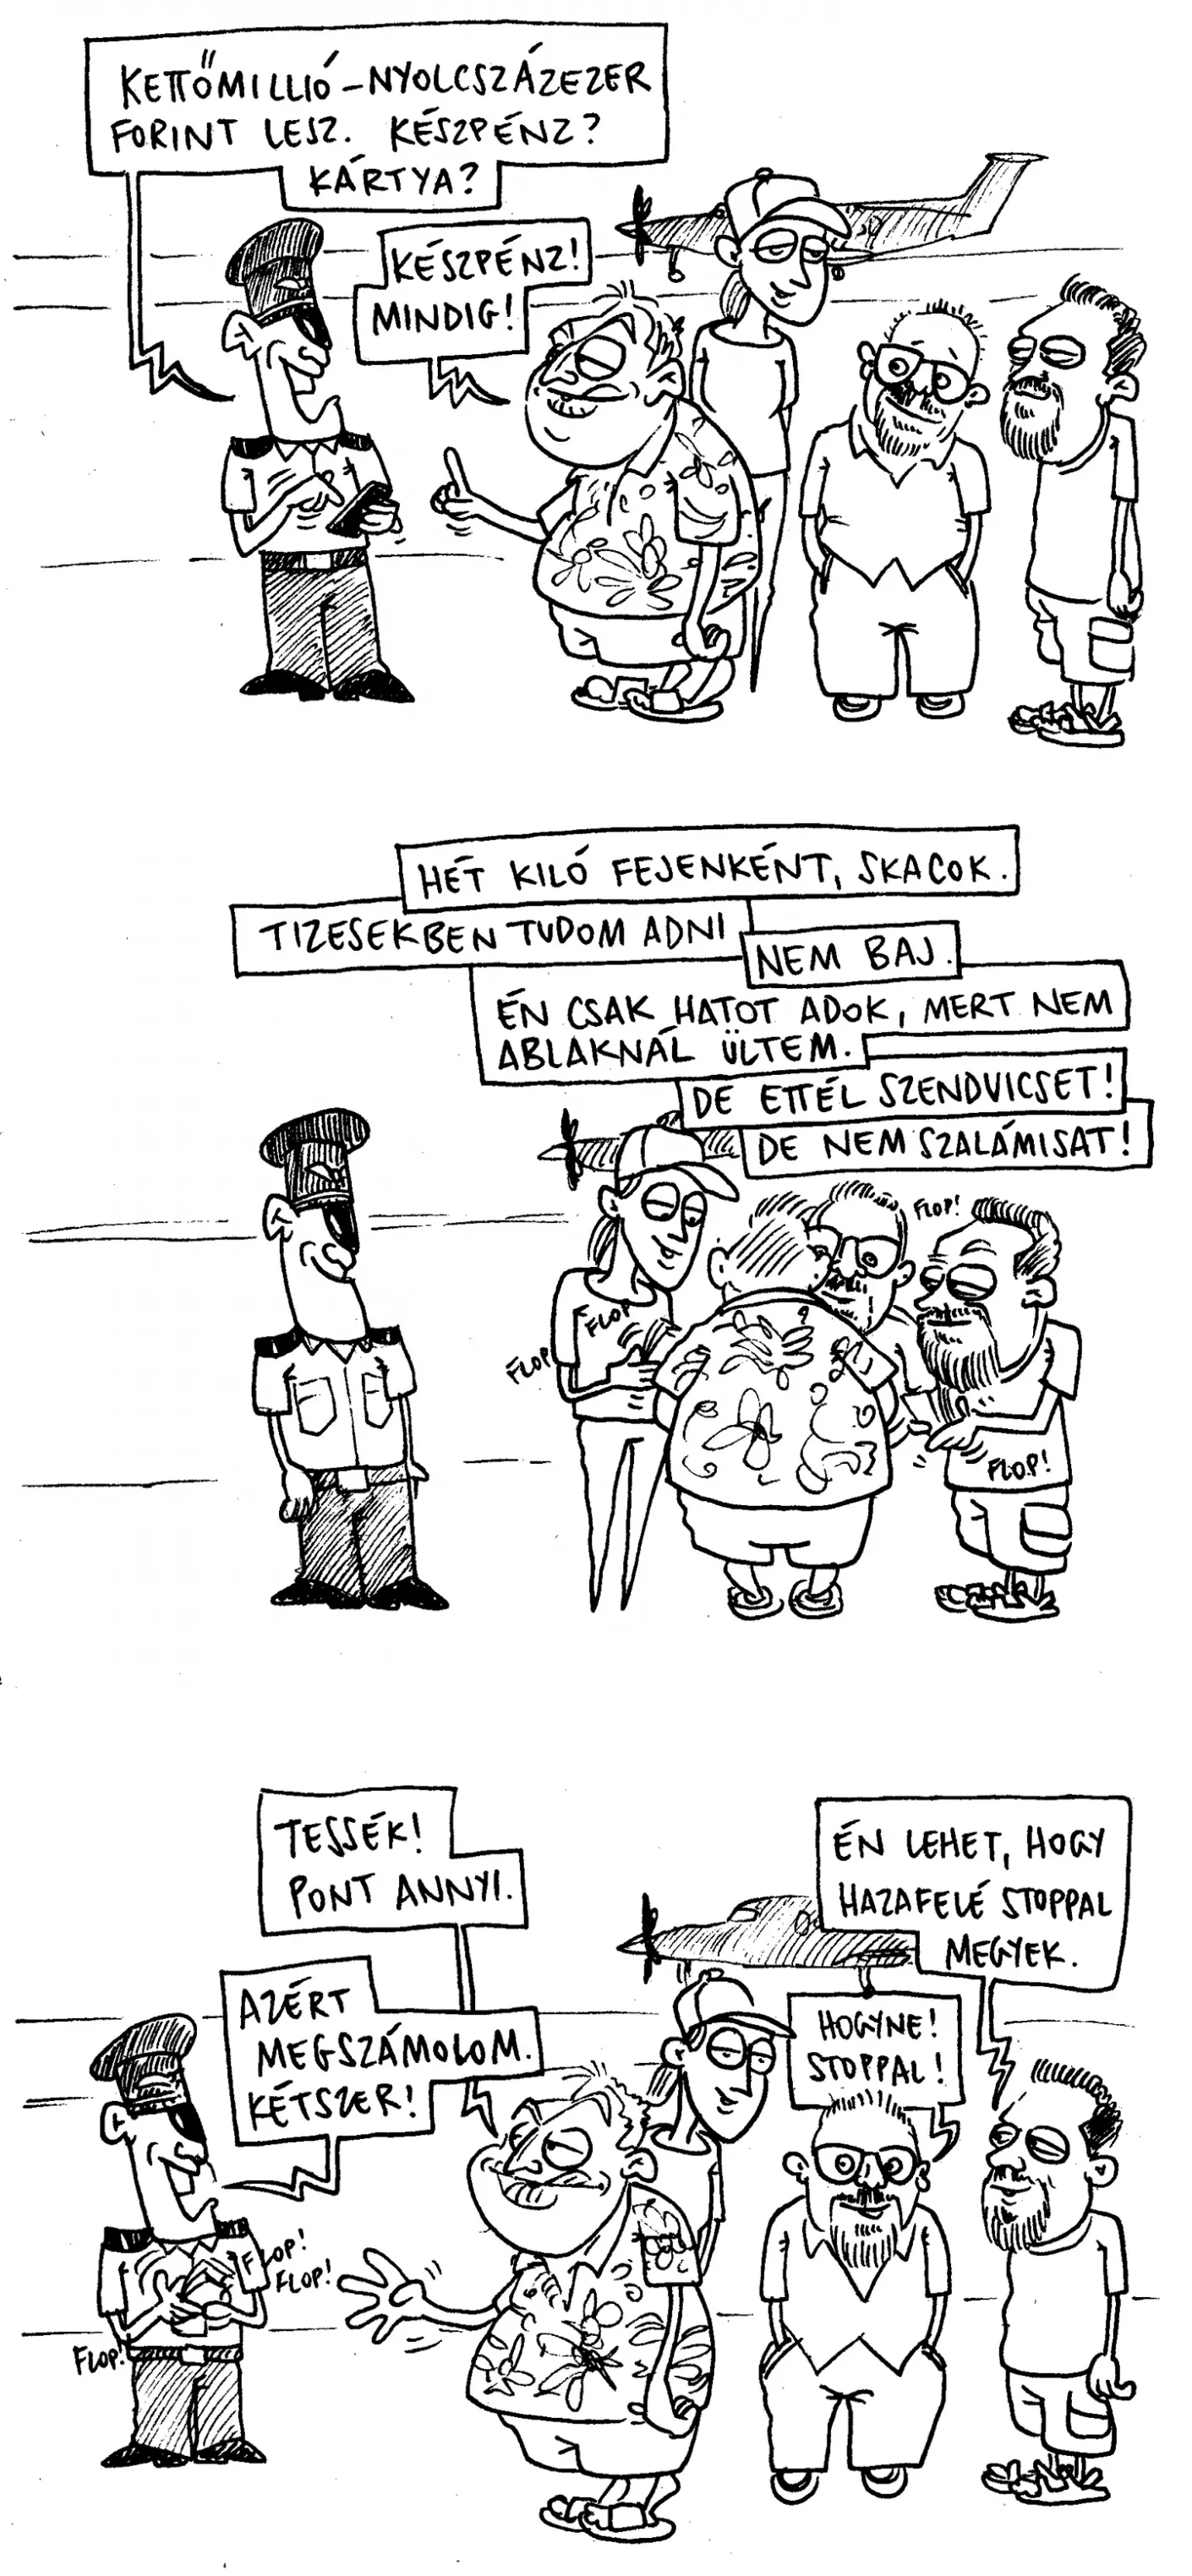 KETTŐMILLIÓ-NYOLCSZÁZEZER
FORINT LESZ. KÉSZPÉNZ?
KÁRTYA?
KÉSZPÉNZ!
MINDIG!
HÉT KILÓ FEJENKÉNT, SKACOK.
TIZESEKBEN TUDOM ADNI
NEM BAJ.
ÉN CSAK HATOT ADOK, MERT NEM
ABLAKNÁL ÜLTEM.
DE ETTÉL SZENDVICSET!
DE NEM SZALÁMISAT!
FLOP!
FLOP
FLOP
FLOP!
TESSÉK!
PONT ANNYI.
AZÉRT
MEGSZÁMOLOM.
KÉTSZER!
ÉN LEHET, HOGY
HAZAFELÉ STOPPAL
MEGYEK.
HOGYNE!
STOPPAL!
FLOP!
FLOP!
FLOP!